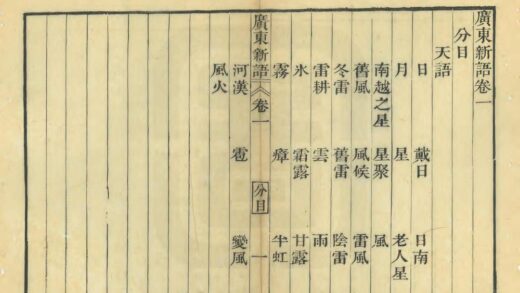 廣東新語卷一
分目
天語
日 戴日 日南
月 星 老人星
南越之星 星聚 風
舊風 風候 雷風
冬雷 舊雷 陰雷
雷耕 雲 雨
氷 霜露 甘露
霧 瘴 半虹
廣東新語 卷一 分目 一
河漢 雹 變風
風火